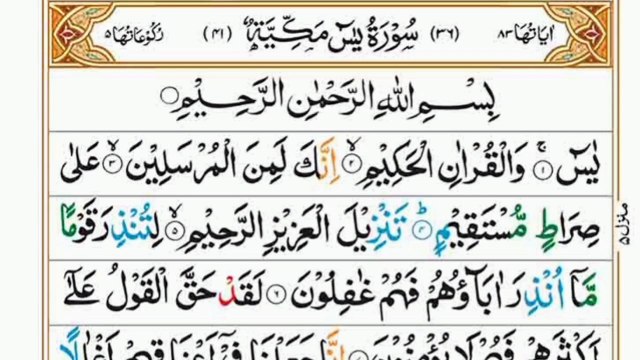 اٰیاتها ۸۳ (۳۶) سُوْرَةُ يٰسٓ مَكِّيَّةٌ (۴۱) رُكُوْعَاتُهَا ۵
بِسْمِ اللّٰهِ الرَّحْمٰنِ الرَّحِيْمِ
يٰسٓ ۚ﴿۱﴾ وَالْقُرْاٰنِ الْحَكِيْمِ ۙ﴿۲﴾ اِنَّكَ لَمِنَ الْمُرْسَلِيْنَ ۙ﴿۳﴾ عَلٰى
صِرَاطٍ مُّسْتَقِيْمٍ ؕ﴿۴﴾ تَنْزِيْلَ الْعَزِيْزِ الرَّحِيْمِ ۙ﴿۵﴾ لِتُنْذِرَ قَوْمًا
مَّاۤ اُنْذِرَ اٰبَآؤُهُمْ فَهُمْ غٰفِلُوْنَ ﴿۶﴾ لَقَدْ حَقَّ الْقَوْلُ عَلٰٓى
اَكْثَرِهِمْ فَهُمْ لَا يُؤْمِنُوْنَ اِنَّا جَعَلْنَا فِيْۤ اَعْنَاقِهِمْ اَغْلٰلًا
منزل ۵